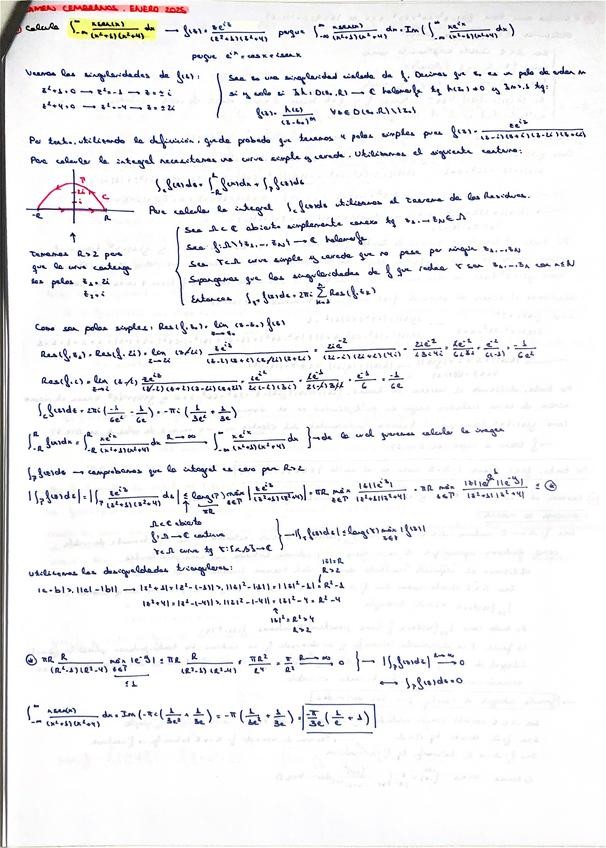 EXAMEN CEMBRANOS. ENERO 2025
Calcula ∫_{-∞}^{∞} xsen(x)/((x²+1)(x²+4)) dx → f(z) = ze^{iz}/((z²+1)(z²+4)) porque ∫_{-∞}^{∞} xsen(x)/((x²+1)(x²+4)) dx = Im(∫_{-∞}^{∞} xe^{ix}/((x²+1)(x²+4)) dx)
porque e^{ix} = cosx + isenx
Veamos las singularidades de f(z):
z²+1=0 → z²=-1 → z=±i
z²+4=0 → z²=-4 → z=±2i
Sea z₀ una singularidad aislada de f. Decimos que z₀ es un polo de orden m
si y solo si ∃h: D(z₀,R) → ℂ holomorfa tq h(z₀)≠0 y ∃m≥1 tq:
f(z) = h(z)/(z-z₀)^m ∀z∈D(z₀,R)\{z₀}
Por tanto, utilizando la definición, queda probado que tenemos 4 polos simples pues f(z) = ze^{iz}/((z-i)(z+i)(z-2i)(z+2i))
Para calcular la integral necesitamos una curva simple y cerrada. Utilizamos el siguiente contorno:
∫_C f(z)dz = ∫_{-R}^{R} f(x)dx + ∫_Γ f(z)dz
Para calcular la integral ∫_C f(z)dz utilizamos el Teorema de los Residuos.
Γ
2i
i
C
-R
R
Tomamos R>2 para
que la curva contenga
los polos z₁=2i
z₂=i
Sea Ω⊂ℂ abierto simplemente conexo tq z₁,...,z_N∈Ω
Sea f: Ω\{z₁,...,z_N} → ℂ holomorfa
Sea γ⊂Ω curva simple y cerrada que no pasa por ningún z₁,...,z_N
Supongamos que las singularidades de f que rodea γ son z₁,...,z_n con n≤N
Entonces ∫_γ f(z)dz = 2πi Σ_{k=1}^{n} Res(f,z_k)
Como son polos simples, Res(f,z₀) = lim_{z→z₀} (z-z₀) f(z)
Res(f,z₁) = Res(f,2i) = lim_{z→2i} (z-2i) ze^{iz}/((z-i)(z+i)(z-2i)(z+2i)) = 2ie^{-2}/((2i-i)(2i+i)(4i)) = 2ie^{-2}/(i·3i·4i) = e^{-2}/(6i·i) = e^{-2}/(6(-1)) = -1/(6e²)
Res(f,i) = lim_{z→i} (z-i) ze^{iz}/((z-i)(z+i)(z-2i)(z+2i)) = ie^{i²}/(2i(-i)(3i)) = e^{-1}/6 = 1/(6e)
∫_C f(z)dz = 2πi(-1/(6e²) - 1/(6e)) = -πi(1/(3e²) + 1/(3e))
∫_{-R}^{R} f(x)dx = ∫_{-R}^{R} xe^{ix}/((x²+1)(x²+4)) dx R→∞ ∫_{-∞}^{∞} xe^{ix}/((x²+1)(x²+4)) dx } → de la cual queremos calcular la imagen
∫_Γ f(z)dz → comprobamos que la integral es cero por R>2
|∫_Γ f(z)dz| = |∫_Γ ze^{iz}/((z²+1)(z²+4)) dz| ≤ long(Γ) máx_{z∈Γ} |ze^{iz}/((z²+1)(z²+4))| = πR máx_{z∈Γ} |z||e^{iz}|/(|z²+1||z²+4|) = πR máx_{z∈Γ} |z||e^{ix}||e^{-y}|/(|z²+1||z²+4|) ≤ ⊛
πR
1
Ω⊂ℂ abierto
f: Ω→ℂ continua
γ⊂Ω curva tq γ:[α,β]→ℂ
→ |∫_γ f(z)dz| ≤ long(γ) máx |f(z)|
Utilizamos las desigualdades triangulares:
|z|=R
R>2
|a-b| ≥ ||a|-|b|| → |z²+1| = |z²-(-1)| ≥ ||z|²-|-1|| = ||z|²-1| = R²-1
|z²+4| = |z²-(-4)| ≥ ||z|²-|-4|| = |z|²-4 = R²-4
|z|²=R²>4
R>2
⊛ πR R/((R²-1)(R²-4)) máx_{z∈Γ} |e^{-y}| ≤ πR R/((R²-1)(R²-4)) ≈ πR²/R⁴ = π/R² R→∞ 0 } → |∫_Γ f(z)dz| R→∞ 0
≤1
↔ ∫_Γ f(z)dz = 0
∫_{-∞}^{∞} xsen(x)/((x²+1)(x²+4)) dx = Im(-πi(1/(3e²) + 1/(3e))) = -π(1/(3e²) + 1/(3e)) = -π/(3e)(1/e + 1)